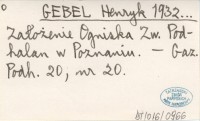 GEBEL Henryk 1932...
Założenie Ogniska Zw. Pod-
halan w Poznaniu. – Gaz.
Podh. 20, nr 20.